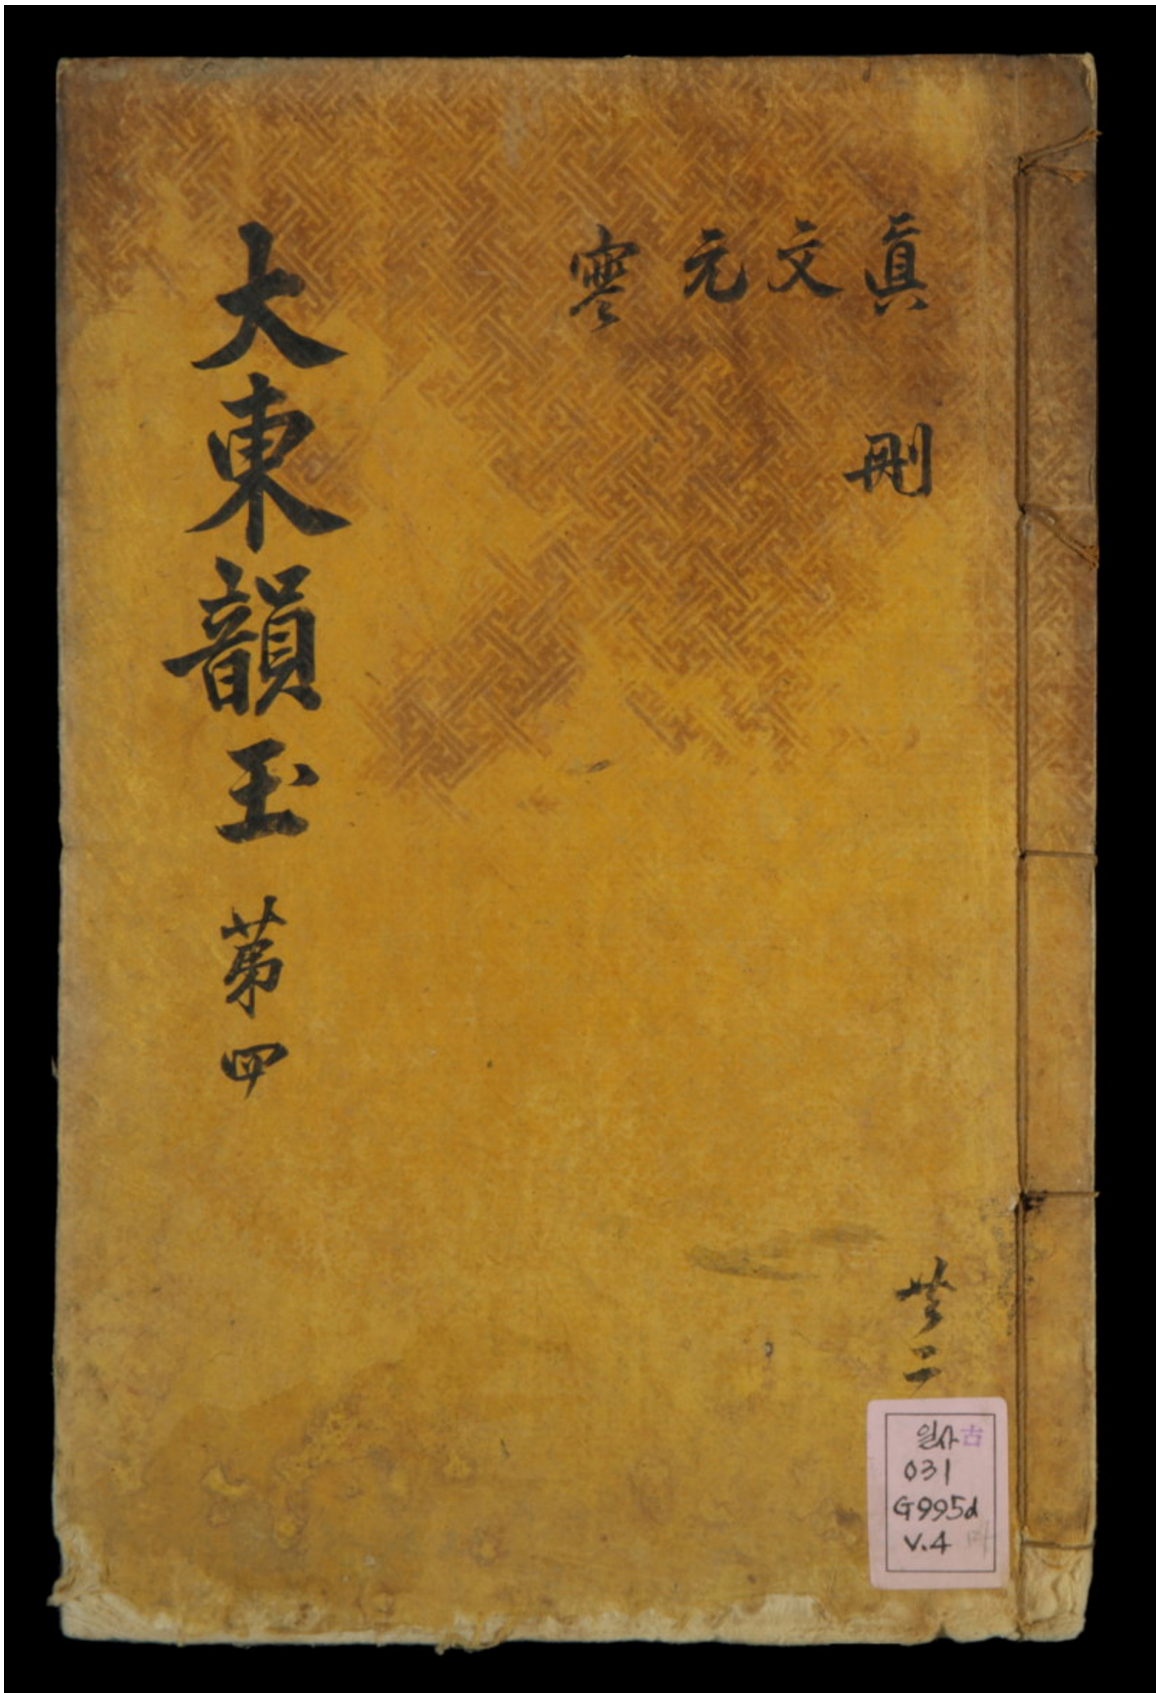 眞文元寒
刪
大東韻玉 苐四
共二
일사古
031
G995d
V.4 마